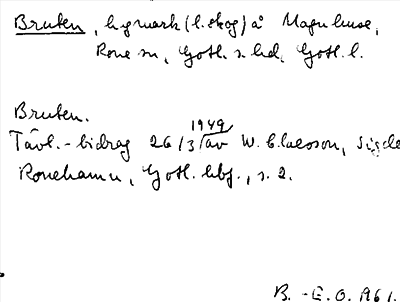 Bruten, hygmark (l. skog) å Magnuse,
Rone sn, Gotl. s. hd, Gotl. l.
Bruten.
1949
Tävl.-bidrag 26/3 av W. Claesson, Sigde
Ronehamn, Gotl. hbg., s. 2.
B.-E.O. 1961.